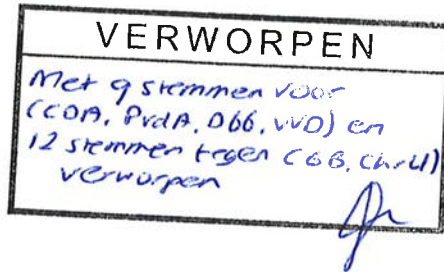 VERWORPEN
Met 9 stemmen voor
(CDA, PvdA, D66, VVD) en
12 stemmen tegen (GB, ChrU)
verworpen